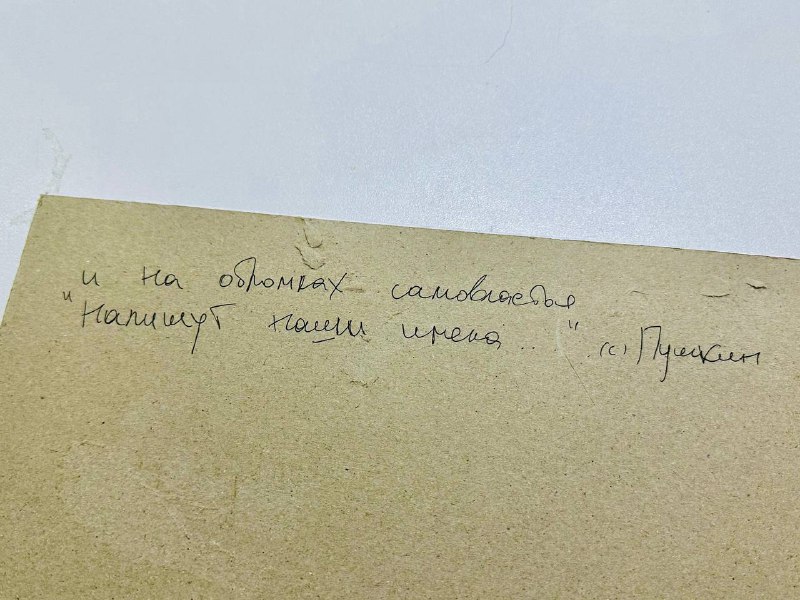 и на обломках самовластья
"Напишут наши имена..." (с) Пушкин